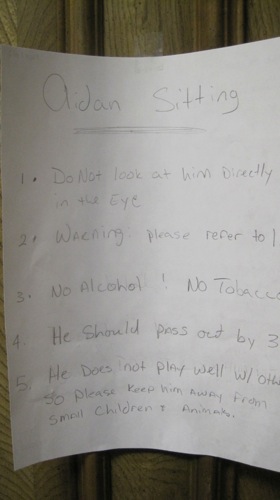 Aidan Sitting
1. Do Not look at him Directly
in the Eye
2. Warning: please refer to 1
3. No Alcohol! No Tobacco
4. He should pass out by 3
5. He Does not play well w/ oth
so please keep him away from
small children & Animals.